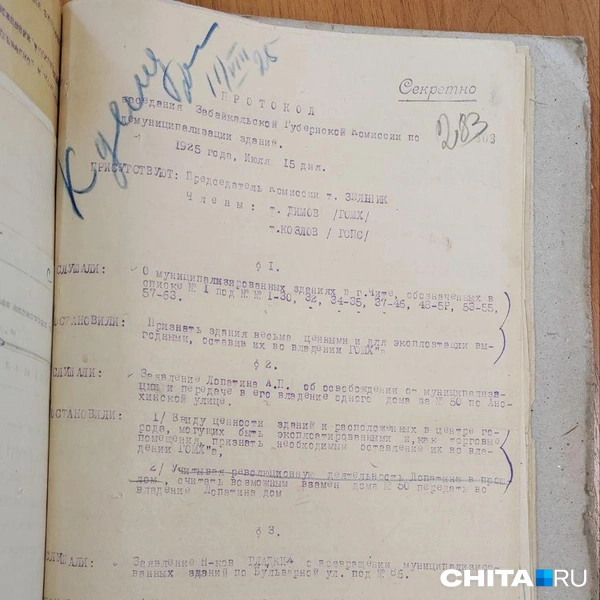 К делу
11/VIII 25
Секретно
283
ПРОТОКОЛ
заседания Забайкальской Губернской Комиссии по
демуниципализации зданий.
1925 года, Июля 15 дня.
ПРИСУТСТВУЮТ: Председатель Комиссии т.
Члены: т. ДИМОВ /ГОМХ/
т. КОЗЛОВ /ГОПС/
§ 1.
СЛУШАЛИ: О муниципализированных зданиях в г. Чите, обозначенных в
списке № 1 под № № 1-30, 32, 34-35, 37-46, 53-55,
57-63.
ОСТАНОВИЛИ: Признать здания весьма ценными и для эксплоатации вы-
годными, оставив их во владении ГОМХ"а.
§ 2.
СЛУШАЛИ: Заявление Лопатина А.П. об освобождении от муниципализа-
ции и передаче в его владение одного дома за № 50 по Ано-
хинской улице.
ОСТАНОВИЛИ: 1/ Ввиду ценности зданий и расположенных в центре го-
рода, могущих быть эксплоатированными и, как торговые
помещения, признать необходимым оставление их во вла-
дении ГОМХ"а,
2/ Учитывая революционную деятельность Лопатина в прош
лом, считать возможным взамен дома № 50 передать во
владение Лопатина дом
§ 3.
СЛУШАЛИ: Заявление о возвращении муниципализиро-
ванных зданий по Бульварной ул. под №
CHITA.RU